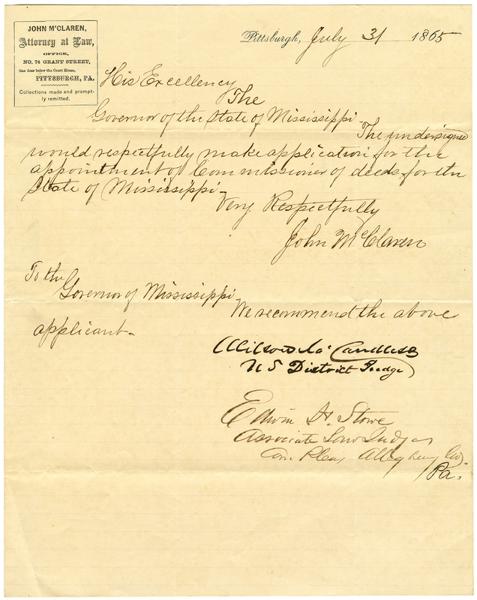 JOHN M'CLAREN,
Attorney at Law,
OFFICE,
NO. 74 GRANT STREET,
One door below the Court House,
PITTSBURGH, PA.
Collections made and prompt-
ly remitted.
Pittsburgh, July 31 1865
His Excellency
The
Governor of the State of Mississippi
The undersigned
would respectfully make application for the
appointment of Commissioner of deeds for the
State of Mississippi-
Very Respectfully
John McClaren
To the
Governor of Mississippi
We recommend the above
applicant-
Wilson McCandless
U S District Judge
Edwin H. Stowe
Associate Law Judge
Com. Pleas Allegheny Co.
Pa.